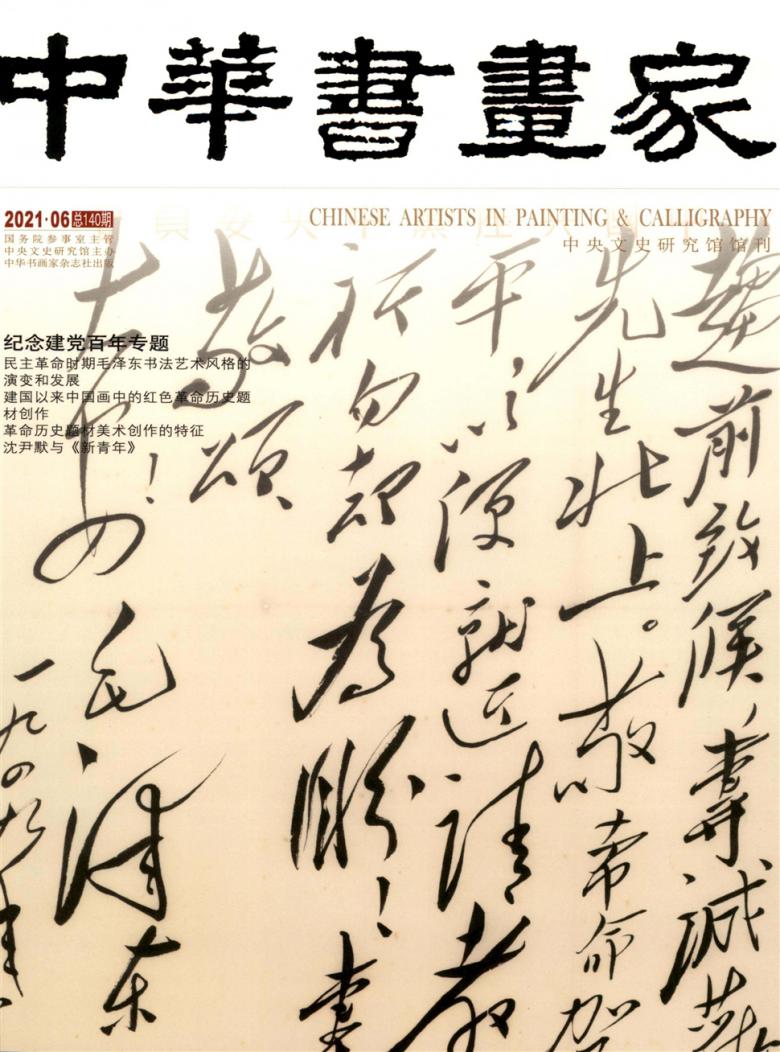 中華書畫家
2021·06 总140期
CHINESE ARTISTS IN PAINTING & CALLIGRAPHY
中央文史研究馆馆刊
国务院参事室主管
中央文史研究馆主办
中华书画家杂志社出版
纪念建党百年专题
民主革命时期毛泽东书法艺术风格的
演变和发展
建国以来中国画中的红色革命历史题
材创作
革命历史题材美术创作的特征
沈尹默与《新青年》
趨前致候,專誠
先生北上。敬希命駕
平,以便就近請教
祈勿却為盼!專
敬頌
大安!
毛泽东
一九四九年